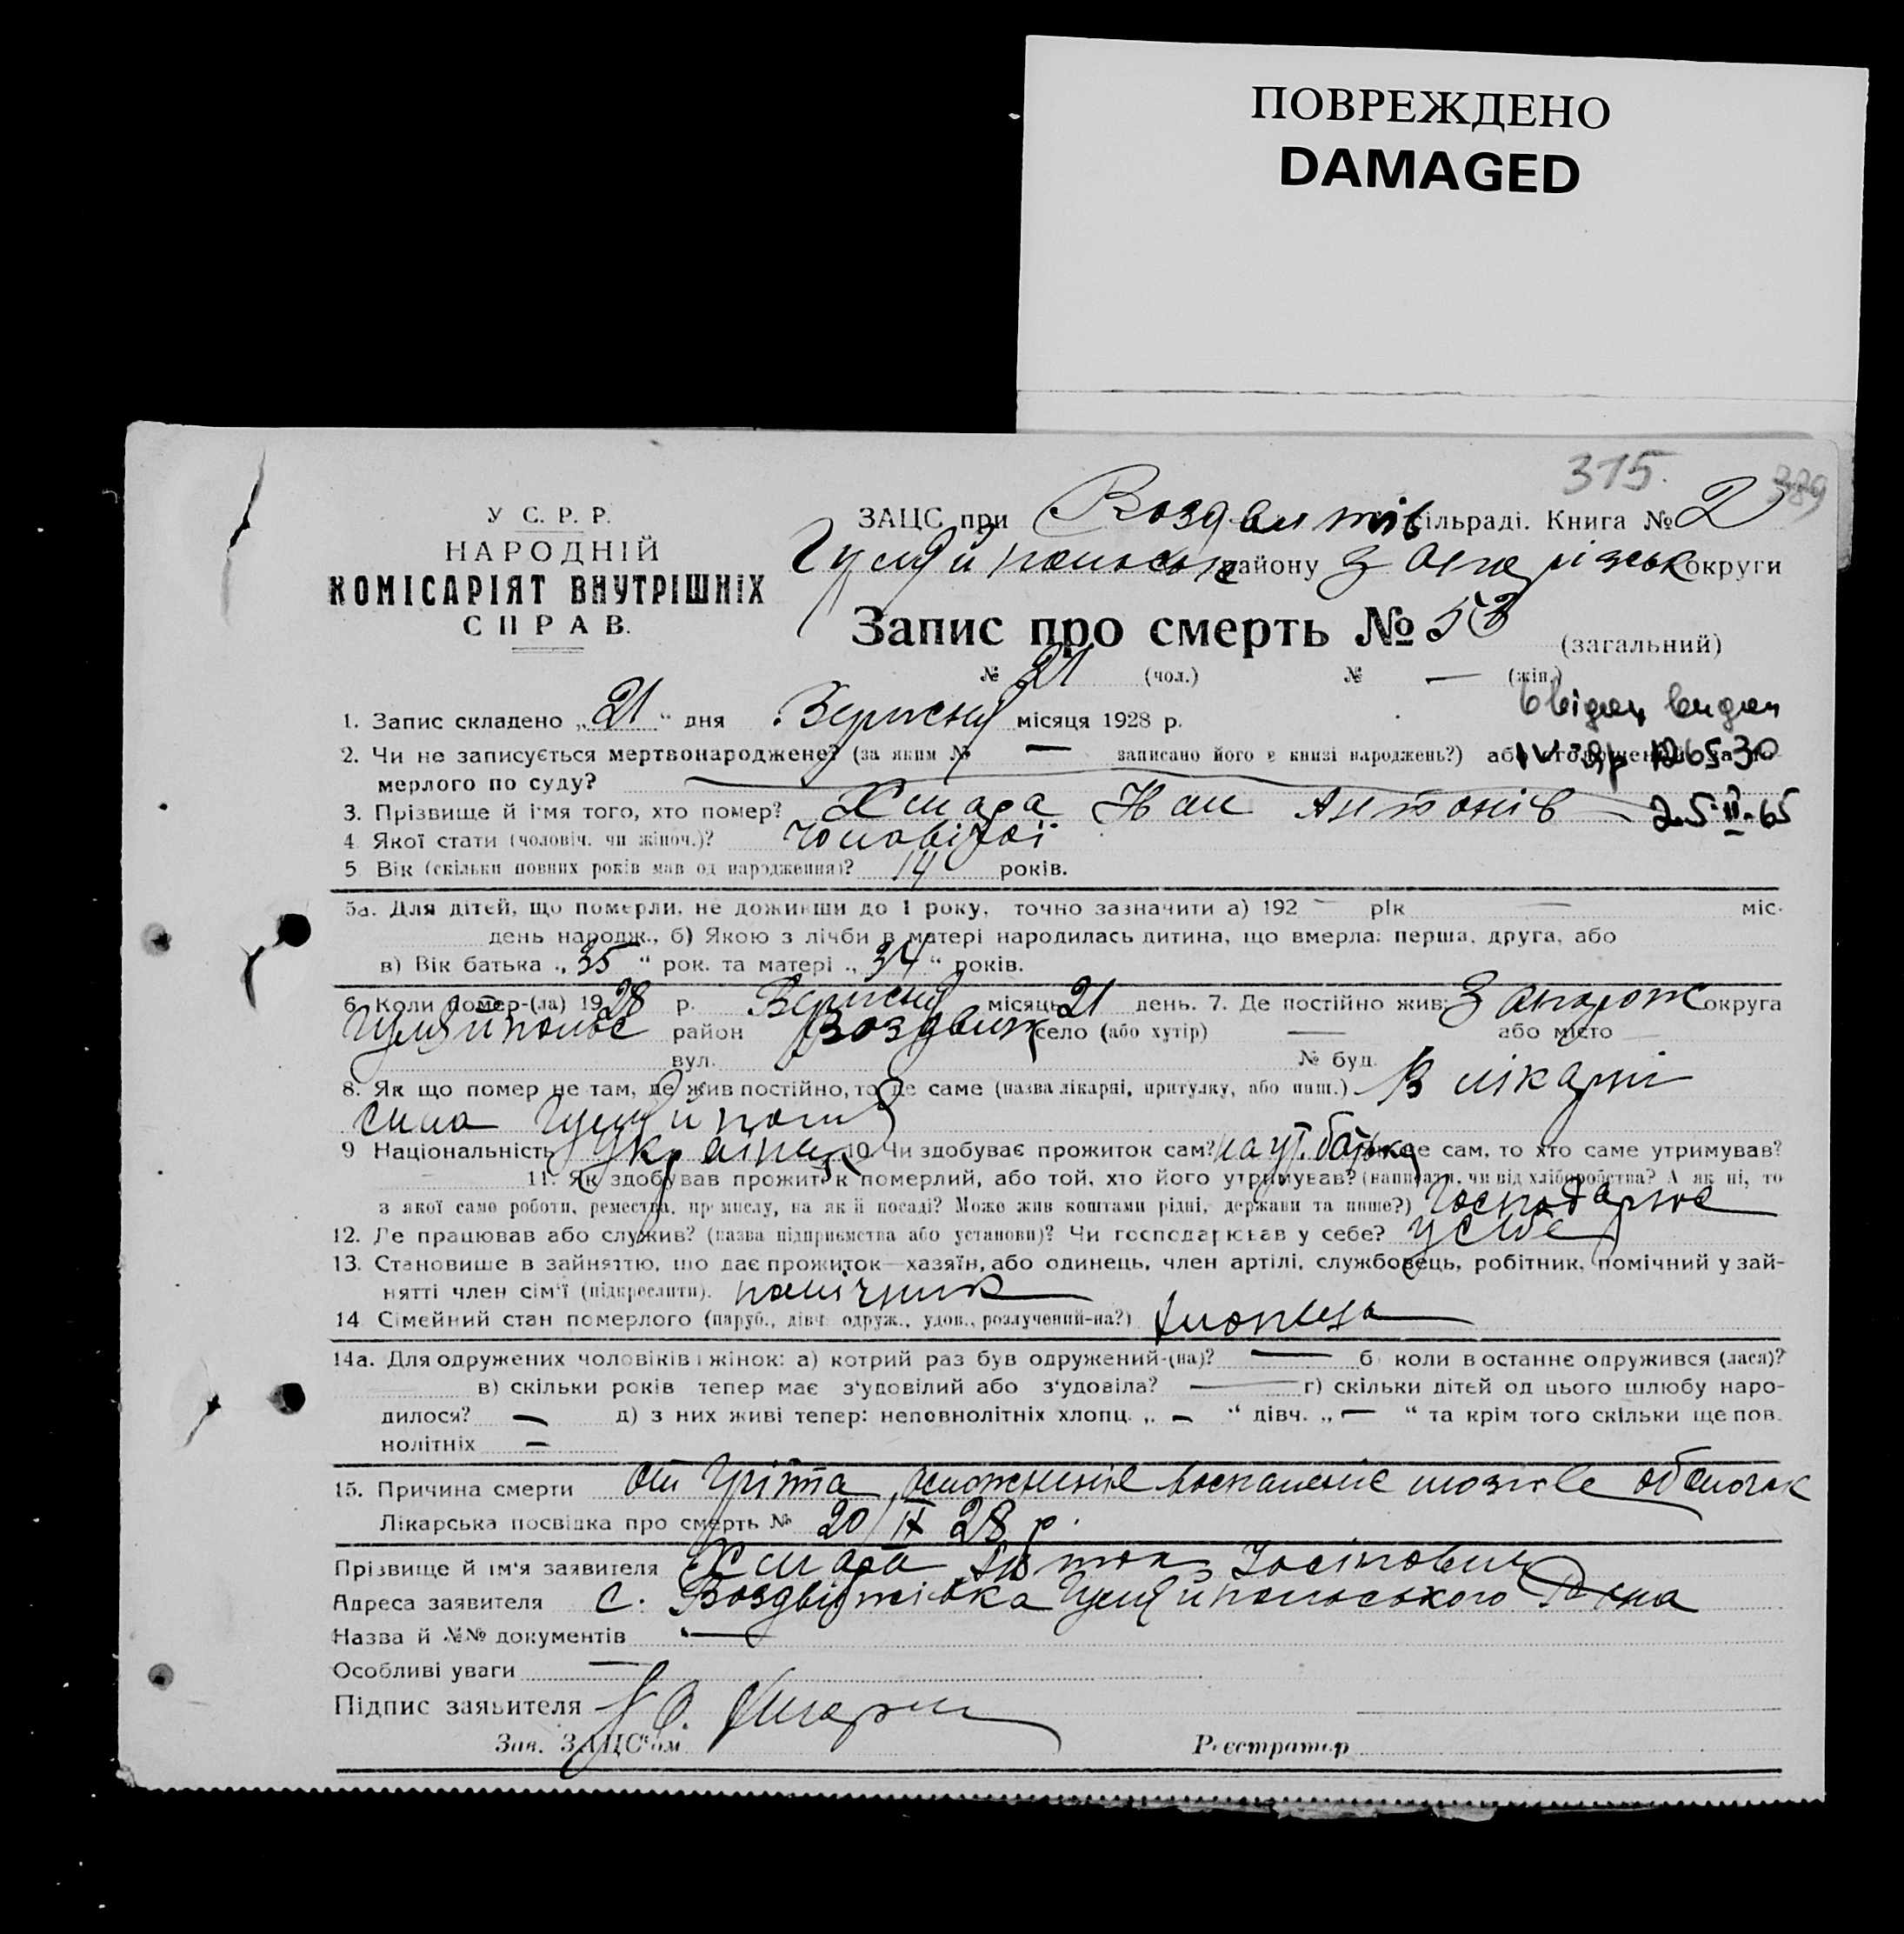 ПОВРЕЖДЕНО
DAMAGED
315.
389
У С. Р. Р.
НАРОДНІЙ
КОМІСАРІЯТ ВНУТРІШНІХ
СПРАВ.
ЗАЦС при Воздвижів сільраді. Книга № 2
Гуляйпольськ району Запорізськ округи
Запис про смерть № 53 (загальний)
№ 31 (чол.) № — (жін.)
1. Запис складено „21“ дня Вересня місяця 1928 р.
2. Чи не записується мертвонароджене? (за яким № — записано його в книзі народжень?) або оголошений за по-
мерлого по суду?
3. Прізвище й ім'я того, хто помер? Хмара Иван Антонів 25·II·65
4 Якої статі (чоловіч. чи жіноч.)? Чоловічої
5 Вік (скільки повних років мав од народження)? 14 років.
5а. Для дітей, що померли, не доживши до 1 року, точно зазначити а) 192 — рік — міс.
день народж., б) Якою з лічби в матері народилась дитина, що вмерла: перша, друга, або
в) Вік батька „35“ рок. та матері „34“ років.
6. Коли помер-(ла) 1928 р. Вересня місяць 21 день. 7. Де постійно жив: Запорож округа
Гуляйпольс район Воздвиж село (або хутір) — або місто
вул. № буд.
8. Як що помер не там, де жив постійно, то де саме (назва лікарні, притулку, або инш.) В лікарні
села Гуляйполя
9 Національність Українец 10. Чи здобуває прожиток сам? на ут. батька не сам, то хто саме утримував?
11. Як здобував прожиток померлий, або той, хто його утримував? (написати, чи від хліборобства? А як ні, то
з якої само роботи, ремества, промислу, на якій посаді? Може жив коштами рідні, держави та инше?) Господарює
12. Де працював або служив? (назва підприємства або установи)? Чи господарював у себе? у себе
13. Становише в зайняттю, що дає прожиток—хазяїн, або одинець, член артілі, службовець, робітник, помічний у зай-
нятті член сім'ї (підкреслити). помічник
14 Сімейний стан померлого (паруб., дівч. одруж., удов., розлучений-на?)
14а. Для одружених чоловіків і жінок: а) котрий раз був одружений-(на)? — б) коли в останнє одружився (лася)?
в) скільки років тепер має з'удовілий або з'удовіла? — г) скільки дітей од цього шлюбу наро-
дилося? — д) з них живі тепер: неповнолітніх хлопц. „ — “ дівч. „ — “ та крім того скільки ще пов.
нолітніх —
15. Причина смерти от Гріппа, осложнение воспаление мозгове оболочек
Лікарська посвідка про смерть № 20/IX 28 р.
Прізвище й ім'я заявителя Хмара Антон Йосіпович
Адреса заявителя с. Воздвіжівка Гуляйпольського Р-на
Назва й №№ документів —
Особливі уваги —
Підпис заявителя
Зав. ЗАЦС'ом Реєстратор